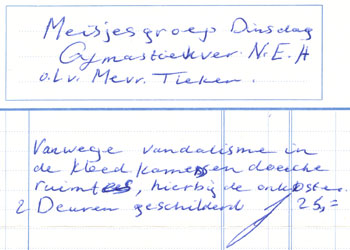 Meisjesgroep Dinsdag
Gymnastiekver. N.E.A
o.l.v. Mevr. Tieken.
Vanwege vandalisme in
de kleedkamers en douche
ruimtes, hierbij de onkosten.
2 Deuren geschilderd 25,=